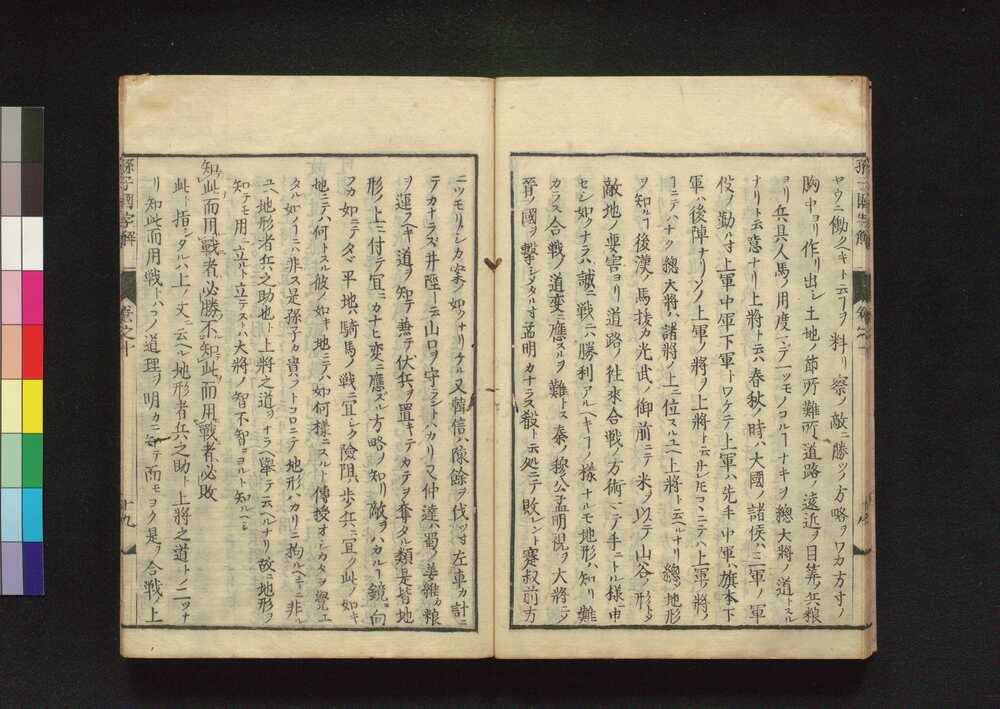 ヤウニ働クヘキト云フヲ料リ察ノ敵ニ勝ツノ方略ヲワカ方寸ノ
胸中ヨリ作リ出シ土地ノ節所難所道路ノ遠近ヲ目筭兵粮
ヨリ兵具人馬ノ用度マテ一ツモノコルーナキヲ總大將ノ道トスル
ナリト云意ナリ上將ト云ハ春秋ノ時ハ大國ノ諸侯ハ三軍ノ軍
役ヲ勤ル寸上軍中軍下軍トワケテ上軍ハ先手中軍ハ旗本下
軍ハ後陣ナリソノ上軍ノ將ヲ上將ト云ナレ𪜈コヽニテハ上軍ノ將ノ
ーニテハナク總大將ハ諸將ノ上ニ位スルユヘ上將ト云ヘルナリ總〆地形
ヲ知ルーハ後漢ノ馬援カ光武ノ御前ニテ米ヲ以テ山谷ノ形ヲ
敵地ノ要害ヨリ道路ノ往來合戰ノ方術マテ手ニトル樣ニ申
セシ如クナラハ誠ニ戰ニハ勝利アルヘキーノ樣ナルモ地形ハ知リ難
カラス合戰ノ道変ニ應スルヲ難トス秦ノ穆公孟明視ヲ大將ニテ
晉ノ國ヲ擊シタル寸孟明カナラス殽ト云処ニテ敗レント蹇叔前方
孫子國字解
卷之十
ニツモリシカ案ノ如クナリケル又韓信ハ陳餘ヲ伐ツ寸左車カ計ニ
テカナラス井陘ーニテ山口ヲ守ラントハカリ又仲達ハ蜀ノ姜維カ粮
ヲ運フヘキ道ヲ知テ兼テ伏兵ヲ置キテカテヲ奪タル類是皆地
形ノ上ニ付テ宜ニカナヒ変ニ應ズル方略ノ知リ敵ヲハカルー鏡ニ向
フカ如ニテタヾ平地ハ騎馬ノ戰ニ宜シク險阻ハ歩兵ニ宜ク此ノ如キ
地ニテハ何トスル彼ノ如キ地ニテハ如何樣ニスルト傳授オシカタヲ覺エ
タル如ノーニハ非ス是孫子カ貴フトコロニテ地形ハカリニ拘ルヘキニ非ル
ユヘ地形者兵之助也ト上將之道ヲナラヘ擧テ云ヘルナリ故ニ地形ヲ
知テモ用ニ立ルト立テストハ大將ノ智不智ニヨルト知ルヘシ
知此而用戰者必勝不知此而用戰者必敗
此ト指シタルハ上ノ文ニ云ヘル地形者兵之助ト上將之道ト二ツナ
リ知此而用戰トハコノ道理ヲ明カニ知テ而モヨク是ヲ合戰ノ上
孫子國字解
卷之十
十九